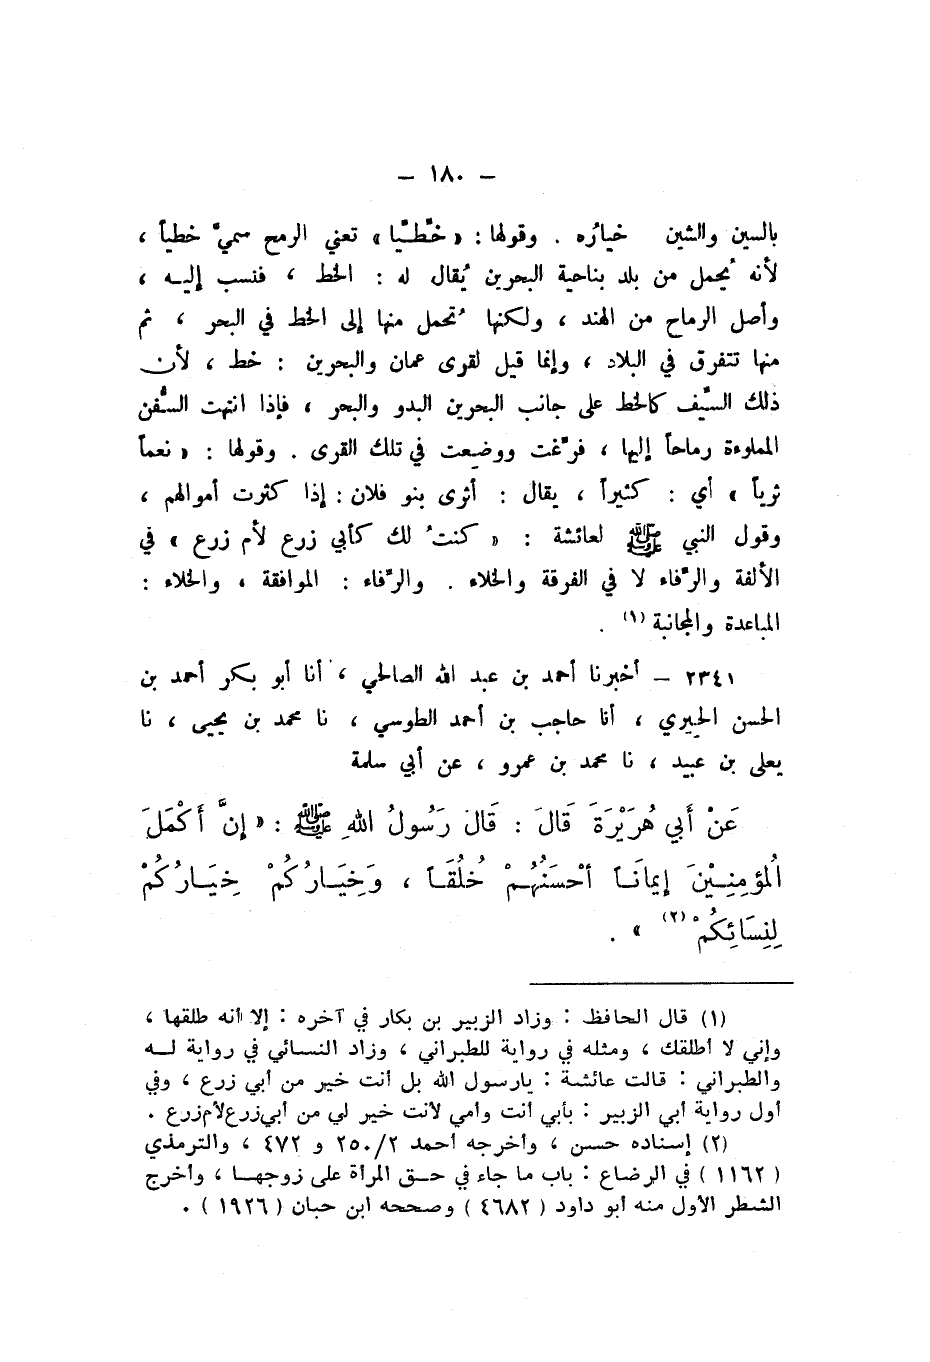 — ١٨٠ —
بالسين والشين خيارُه . وقولها : « خطّيّا » تعني الرمح سميّ خطياً ،
لأنه يُحمل من بلد بناحية البحرين يُقال له : الخط ، فنسب إليه ،
وأصل الرماح من الهند ، ولكنها تُحمل منها إلى الخط في البحر ، ثم
منها تتفرق في البلاد ، وإنما قيل لقرى عمان والبحرين : خط ، لأن
ذلك السِّيف كالخط على جانب البحرين البدو والبحر ، فإذا انتهت السُّفن
المملوءة رماحاً إليها ، فرِّغت ووضعت في تلك القرى . وقولها : « نعماً
ثرياً » أي : كثيراً ، يقال : أثرى بنو فلان : إذا كثرت أموالهم ،
وقول النبي ﷺ لعائشة : « كنتُ لك كأبي زرع لأم زرع » في
الألفة والرِّفاء لا في الفرقة والخلاء . والرِّفاء : الموافقة ، والخلاء :
المباعدة والمجانبة (١) .
٢٣٤١ – أخبرنا أحمد بن عبد الله الصالحي ، أنا أبو بكر أحمد بن
الحسن الحيري ، أنا حاجب بن أحمد الطوسي ، نا محمد بن يحيى ، نا
يعلى بن عبيد ، نا محمد بن عمرو ، عن أبي سلمة
عَنْ أَبِي هُرَيْرَةَ قَالَ : قَالَ رَسُولُ اللهِ ﷺ : « إِنَّ أَكْمَلَ
الْمُؤْمِنِيْنَ إِيمَانَاً أَحْسَنُهُمْ خُلُقَاً ، وَخِيَارُكُمْ خِيَارُكُمْ
لِنِسَائِكُمْ (٢) » .
(١) قال الحافظ : وزاد الزبير بن بكار في آخره : إلا أنه طلقها ،
وإني لا أطلقك ، ومثله في رواية للطبراني ، وزاد النسائي في رواية له
والطبراني : قالت عائشة : يارسول الله بل أنت خير من أبي زرع ، وفي
أول رواية أبي الزبير : بأبي أنت وأمي لأنت خير لي من أبي زرع لأم زرع .
(٢) إسناده حسن ، وأخرجه أحمد ٢/٢٥٠ و ٤٧٢ ، والترمذي
( ١١٦٢ ) في الرضاع : باب ما جاء في حق المرأة على زوجها ، وأخرج
الشطر الأول منه أبو داود ( ٤٦٨٢ ) وصححه ابن حبان ( ١٩٢٦ ) .